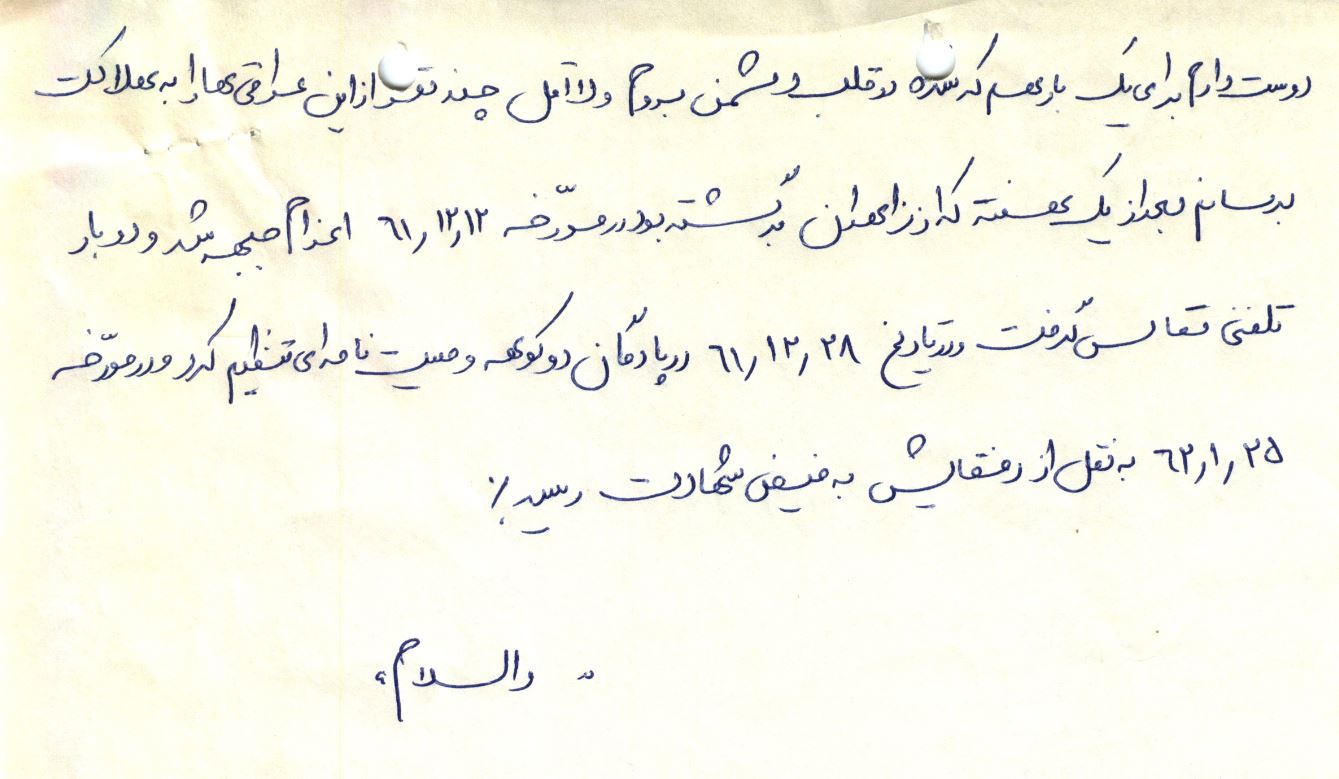 دوست دارم برای یک بار هم که شده در قلب دشمن بروم و لااقل چند نفر از این عراقی ها را به هلاکت
برسانم بعد از یک هفته که از زاهدان برگشته بود در مورّخه ٦١٫١٢٫١٢ اعزام جبهه شد و دو بار
تلفنی تماس گرفت و در تاریخ ٦١٫١٢٫٢٨ در پادگان دوکوهه وصیت نامه ای تنظیم کرد و در مورّخه
٦٢٫١٫٢٥ به نقل از رفقایش به فیض شهادت رسید٪
" والسلام "